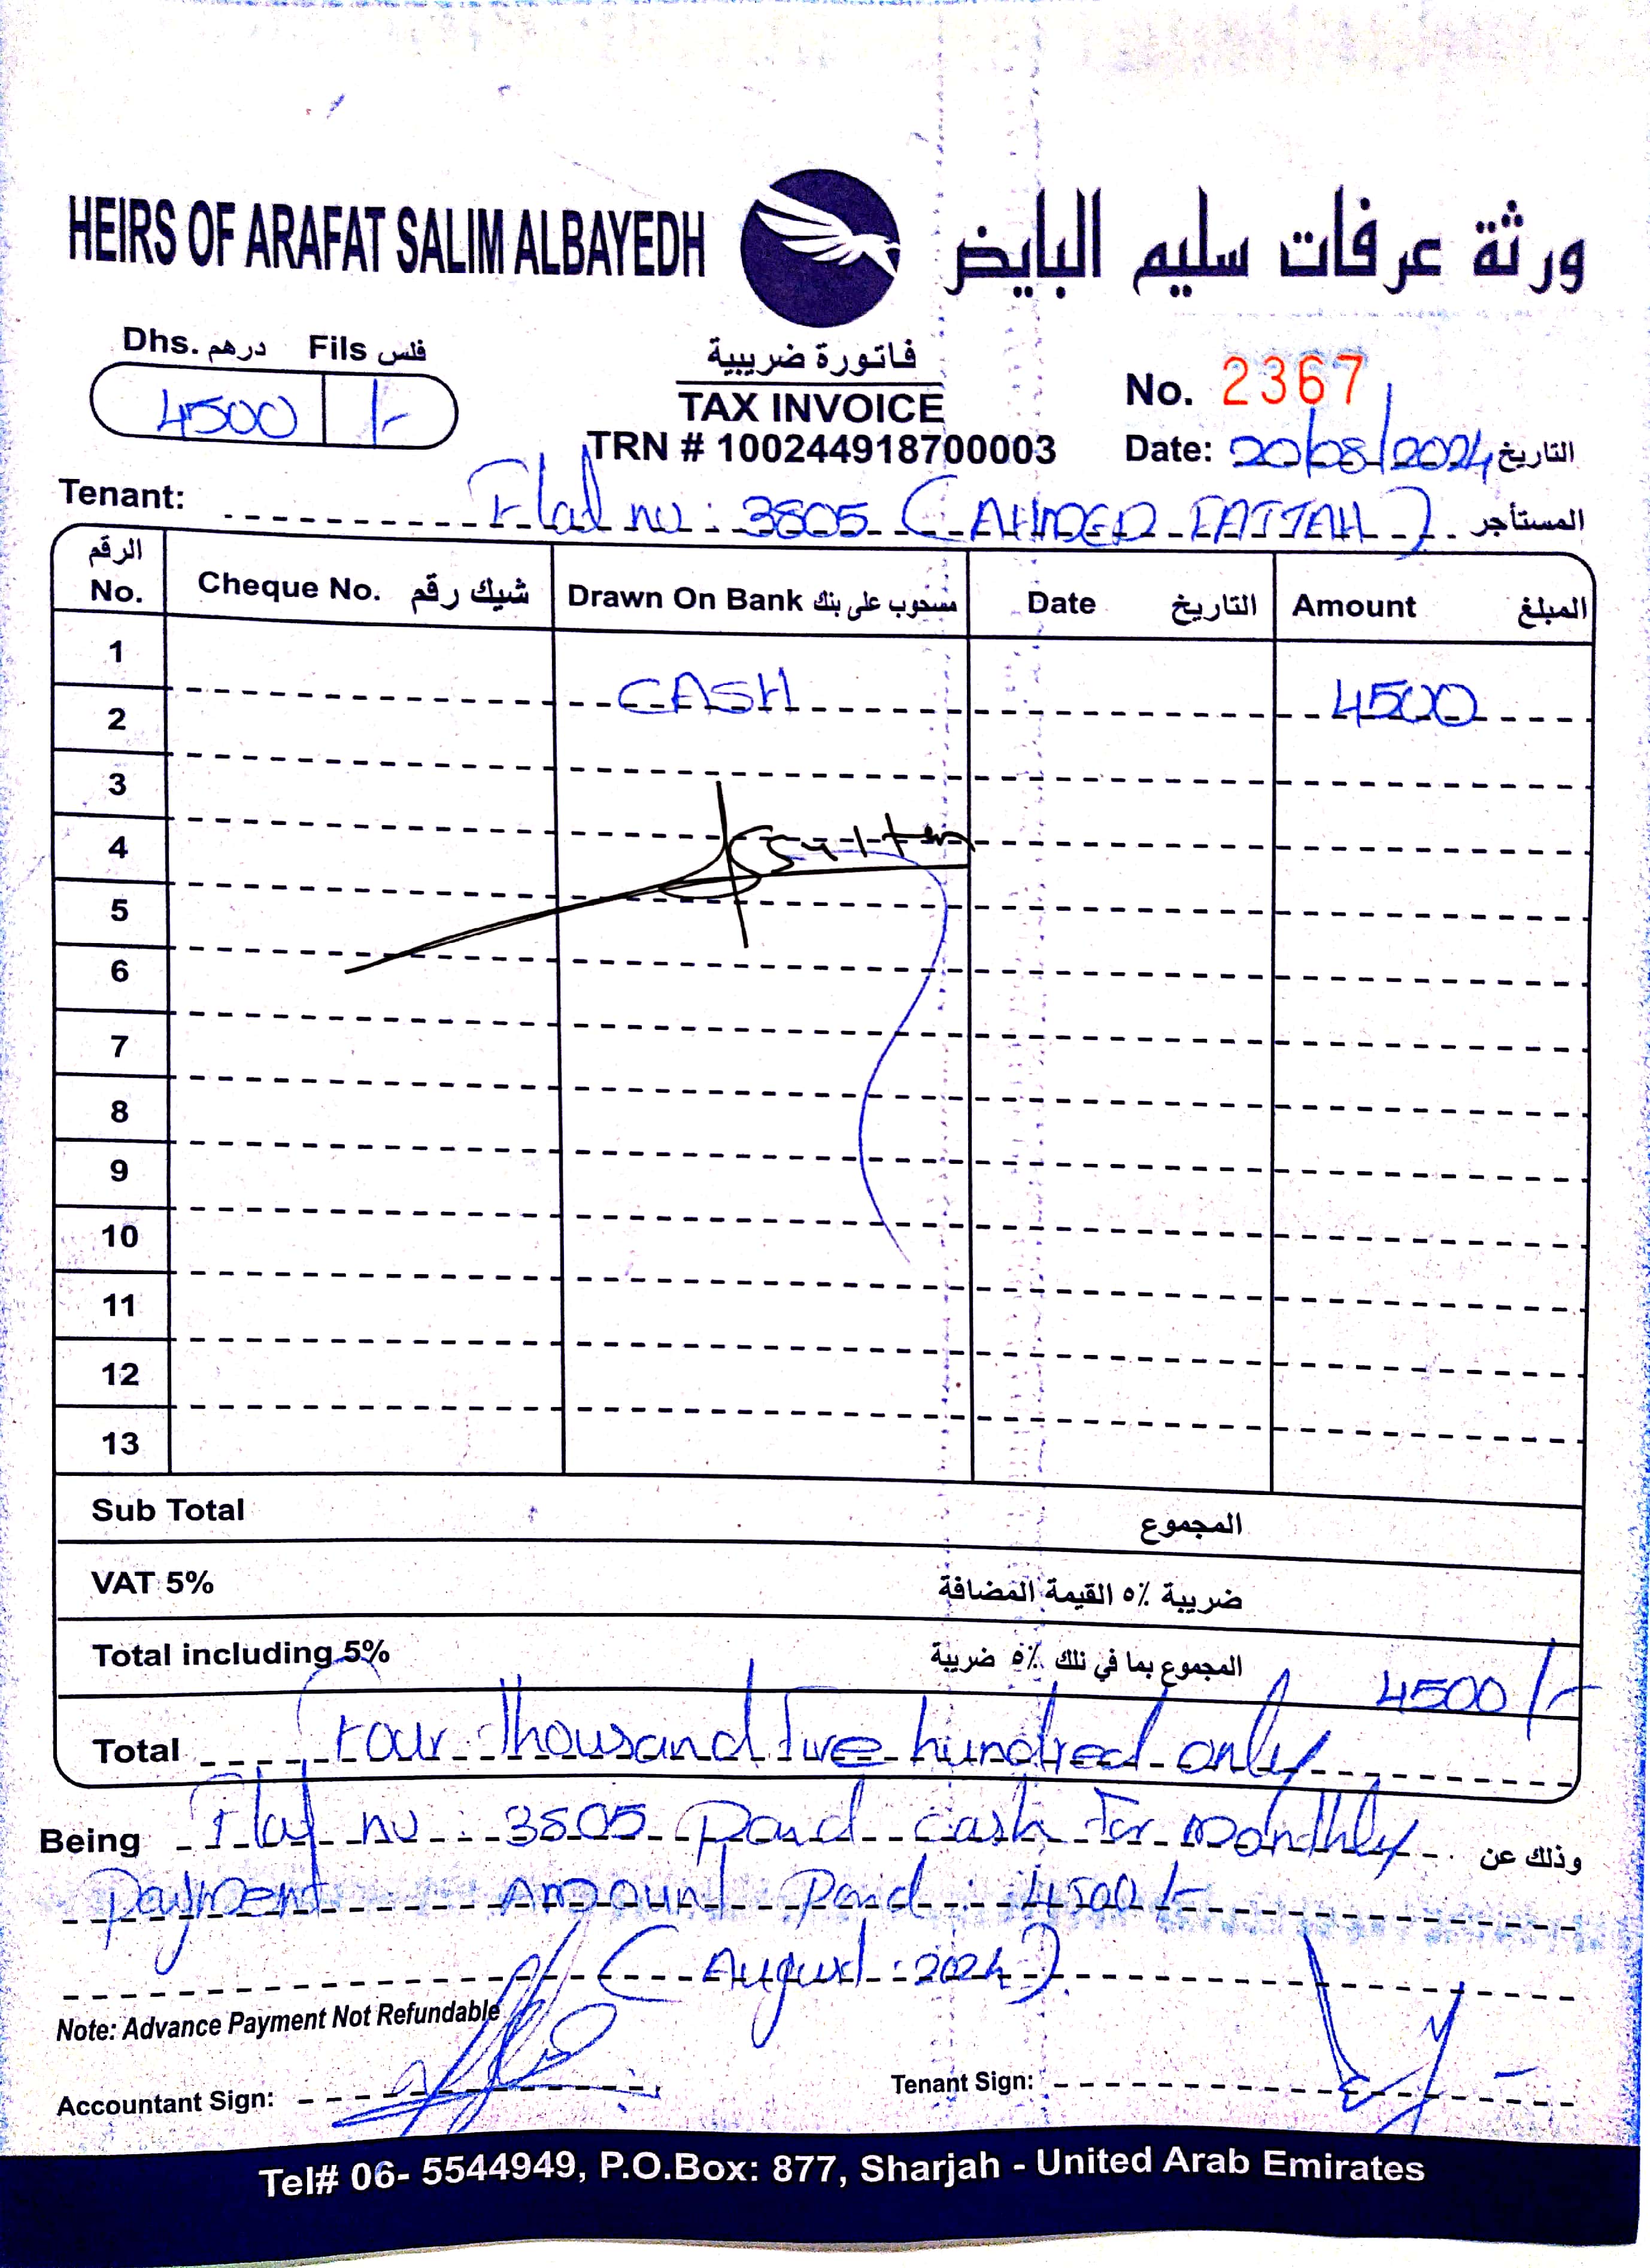 HEIRS OF ARAFAT SALIM ALBAYEDH ورثة عرفات سليم البايض
Dhs. درهم Fils فلس
4500 /-
فاتورة ضريبية
TAX INVOICE
TRN # 100244918700003
No. 2367
Date: 20/08/2024 التاريخ
Tenant: Flat no: 3805 (AHMED FATTAH) المستأجر
الرقم No. Cheque No. شيك رقم Drawn On Bank مسحوب على بنك Date التاريخ Amount المبلغ
1
CASH 4500
2
3
4
5
6
7
8
9
10
11
12
13
Sub Total المجموع
VAT 5% ضريبة ٥٪ القيمة المضافة
Total including 5% المجموع بما في نلك ٥٪ ضريبة 4500/-
Total Four Thousand Five hundred only
Being Flat no: 3805 Paid cash for Monthly وذلك عن
Payment Amount Paid: 4500/-
(August: 2024).
Note: Advance Payment Not Refundable
Accountant Sign: Tenant Sign:
Tel# 06- 5544949, P.O.Box: 877, Sharjah - United Arab Emirates